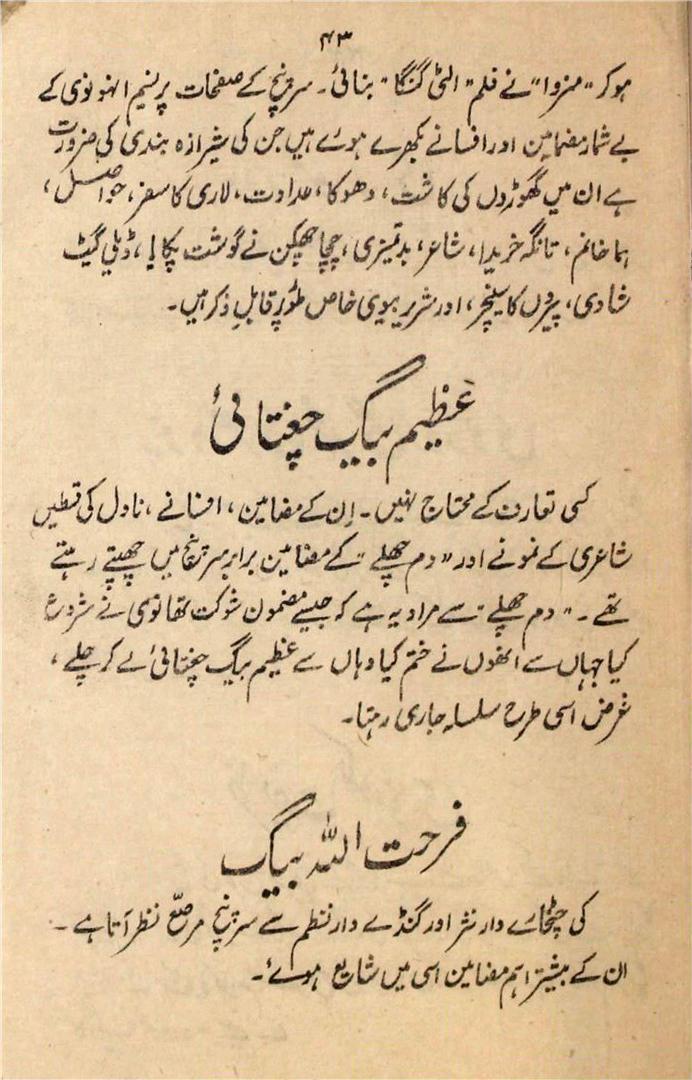 ۴۳
ہوکر "منروا" نے فلم "الٹی گنگا" بنائی۔ سرپنچ کے صفحات پر نسیم انہونوی کے
بے شمار مضامین اور افسانے بکھرے ہوئے ہیں جن کی شیرازہ بندی کی ضرورت
ہے ان میں گھوڑوں کی کاشت، دھوکا، عداوت، لاری کا سفر، حواصل،
ہما خانم، تانگہ خریدا، شاعر، بدتمیزی، چچا چھکن نے گوشت پکایا، ڈیلی گیٹ
شادی، پیروں کا سنیچر، اور شریر بیوی خاص طور پر قابلِ ذکر ہیں۔
عظیم بیگ چغتائی
کسی تعارف کے محتاج نہیں۔ اِن کے مضامین، افسانے، ناول کی قسطیں
شاعری کے نمونے اور "دم چھلے" کے مضامین برابر سرپنچ میں چھپتے رہتے
تھے۔ "دم چھلے" سے مراد یہ ہے کہ جیسے مضمون شوکت تھانوی نے شروع
کیا جہاں سے انھوں نے ختم کیا وہاں سے عظیم بیگ چغتائی لے کر چلے،
غرض اسی طرح سلسلہ جاری رہتا۔
فرحت اللہ بیگ
کی چٹخارے دار نثر اور گنڈے دار نظم سے سرپنچ مرصّع نظر آتا ہے۔
ان کے بیشتر اہم مضامین اسی میں شایع ہوئے۔